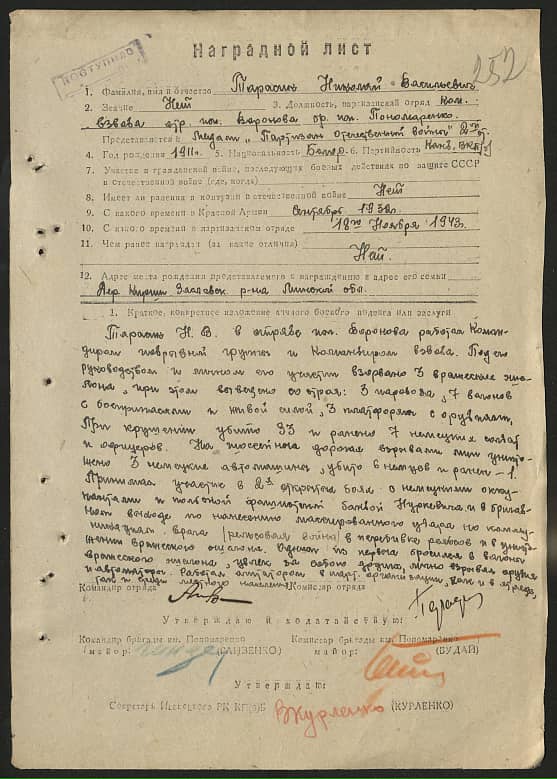 Наградной лист
ПОСТУПИЛО
252
1. Фамилия, имя и отчество Тарасик Николай Васильевич
2. Звание Нет 3. Должность, партизанский отряд Ком.
взвода отр. им. Воронова бр. им. Пономаренко.
Представляется к Медали „Партизан отечественной войны" 2й ст.
4. Год рождения 1911 г. 5. Национальность Белор. 6. Партийность Канд. ВКП(б)
7. Участие в гражданской войне, последующих боевых действиях по защите СССР
и отечественной войне (где, когда)
8. Имеет ли ранения и контузии в отечественной войне Нет
9. С какого времени в Красной Армии Сентябрь 193 г.
10. С какого времени в партизанском отряде 18го Ноября 1943 г.
11. Чем ранее награжден (за какие отличия)
Нет.
12. Адрес места рождения представляемого к награждению и адрес его семьи
Дер. Заславск. р-на Минской обл.
1. Краткое, конкретное изложение личного боевого подвига или заслуги
Тарасик Н. В. в отряде им. Воронова работал Коман-
диром подрывной группы и Командиром взвода. Под его
руководством и личном его участии взорвано 3 вражеских эше-
лона, при этом выведено со строя: 3 паровоза, 7 вагонов
с боеприпасами и живой силой, 3 платформы с орудиями,
При крушении убито 33 и ранено 7 немецких солдат
и офицеров. На шоссейной дороге взрывами мин уничто-
щено 3 немецкие автомашины, убито 6 немцев и ранен - 1.
Принимал участие в 2х открытых боях с немецкими окку-
пантами и польской фашистской бандой и в бригад-
ном выходе по нанесению массированного удара по комму-
никациям врага /рельсовая война/ в перебивке рельсов и в уничто-
жении вражеского эшелона. Одним из первых бросился в вагоны
вражеского эшелона увлек за собою других, лично взорвал орудия
и автоматов. Работал агитатором в парт. организации, как и в отряде,
так и среди местного населения.
Командир отряда Комиссар отряда
Утверждаю и ходатайствую:
Командир бригады им. Пономаренко Комиссар бригады им. Пономаренко
майор: майор: (БУДАЙ)
Утверждаю:
Секретарь РК КП(б)Б ВКурленко (КУРЛЕНКО)